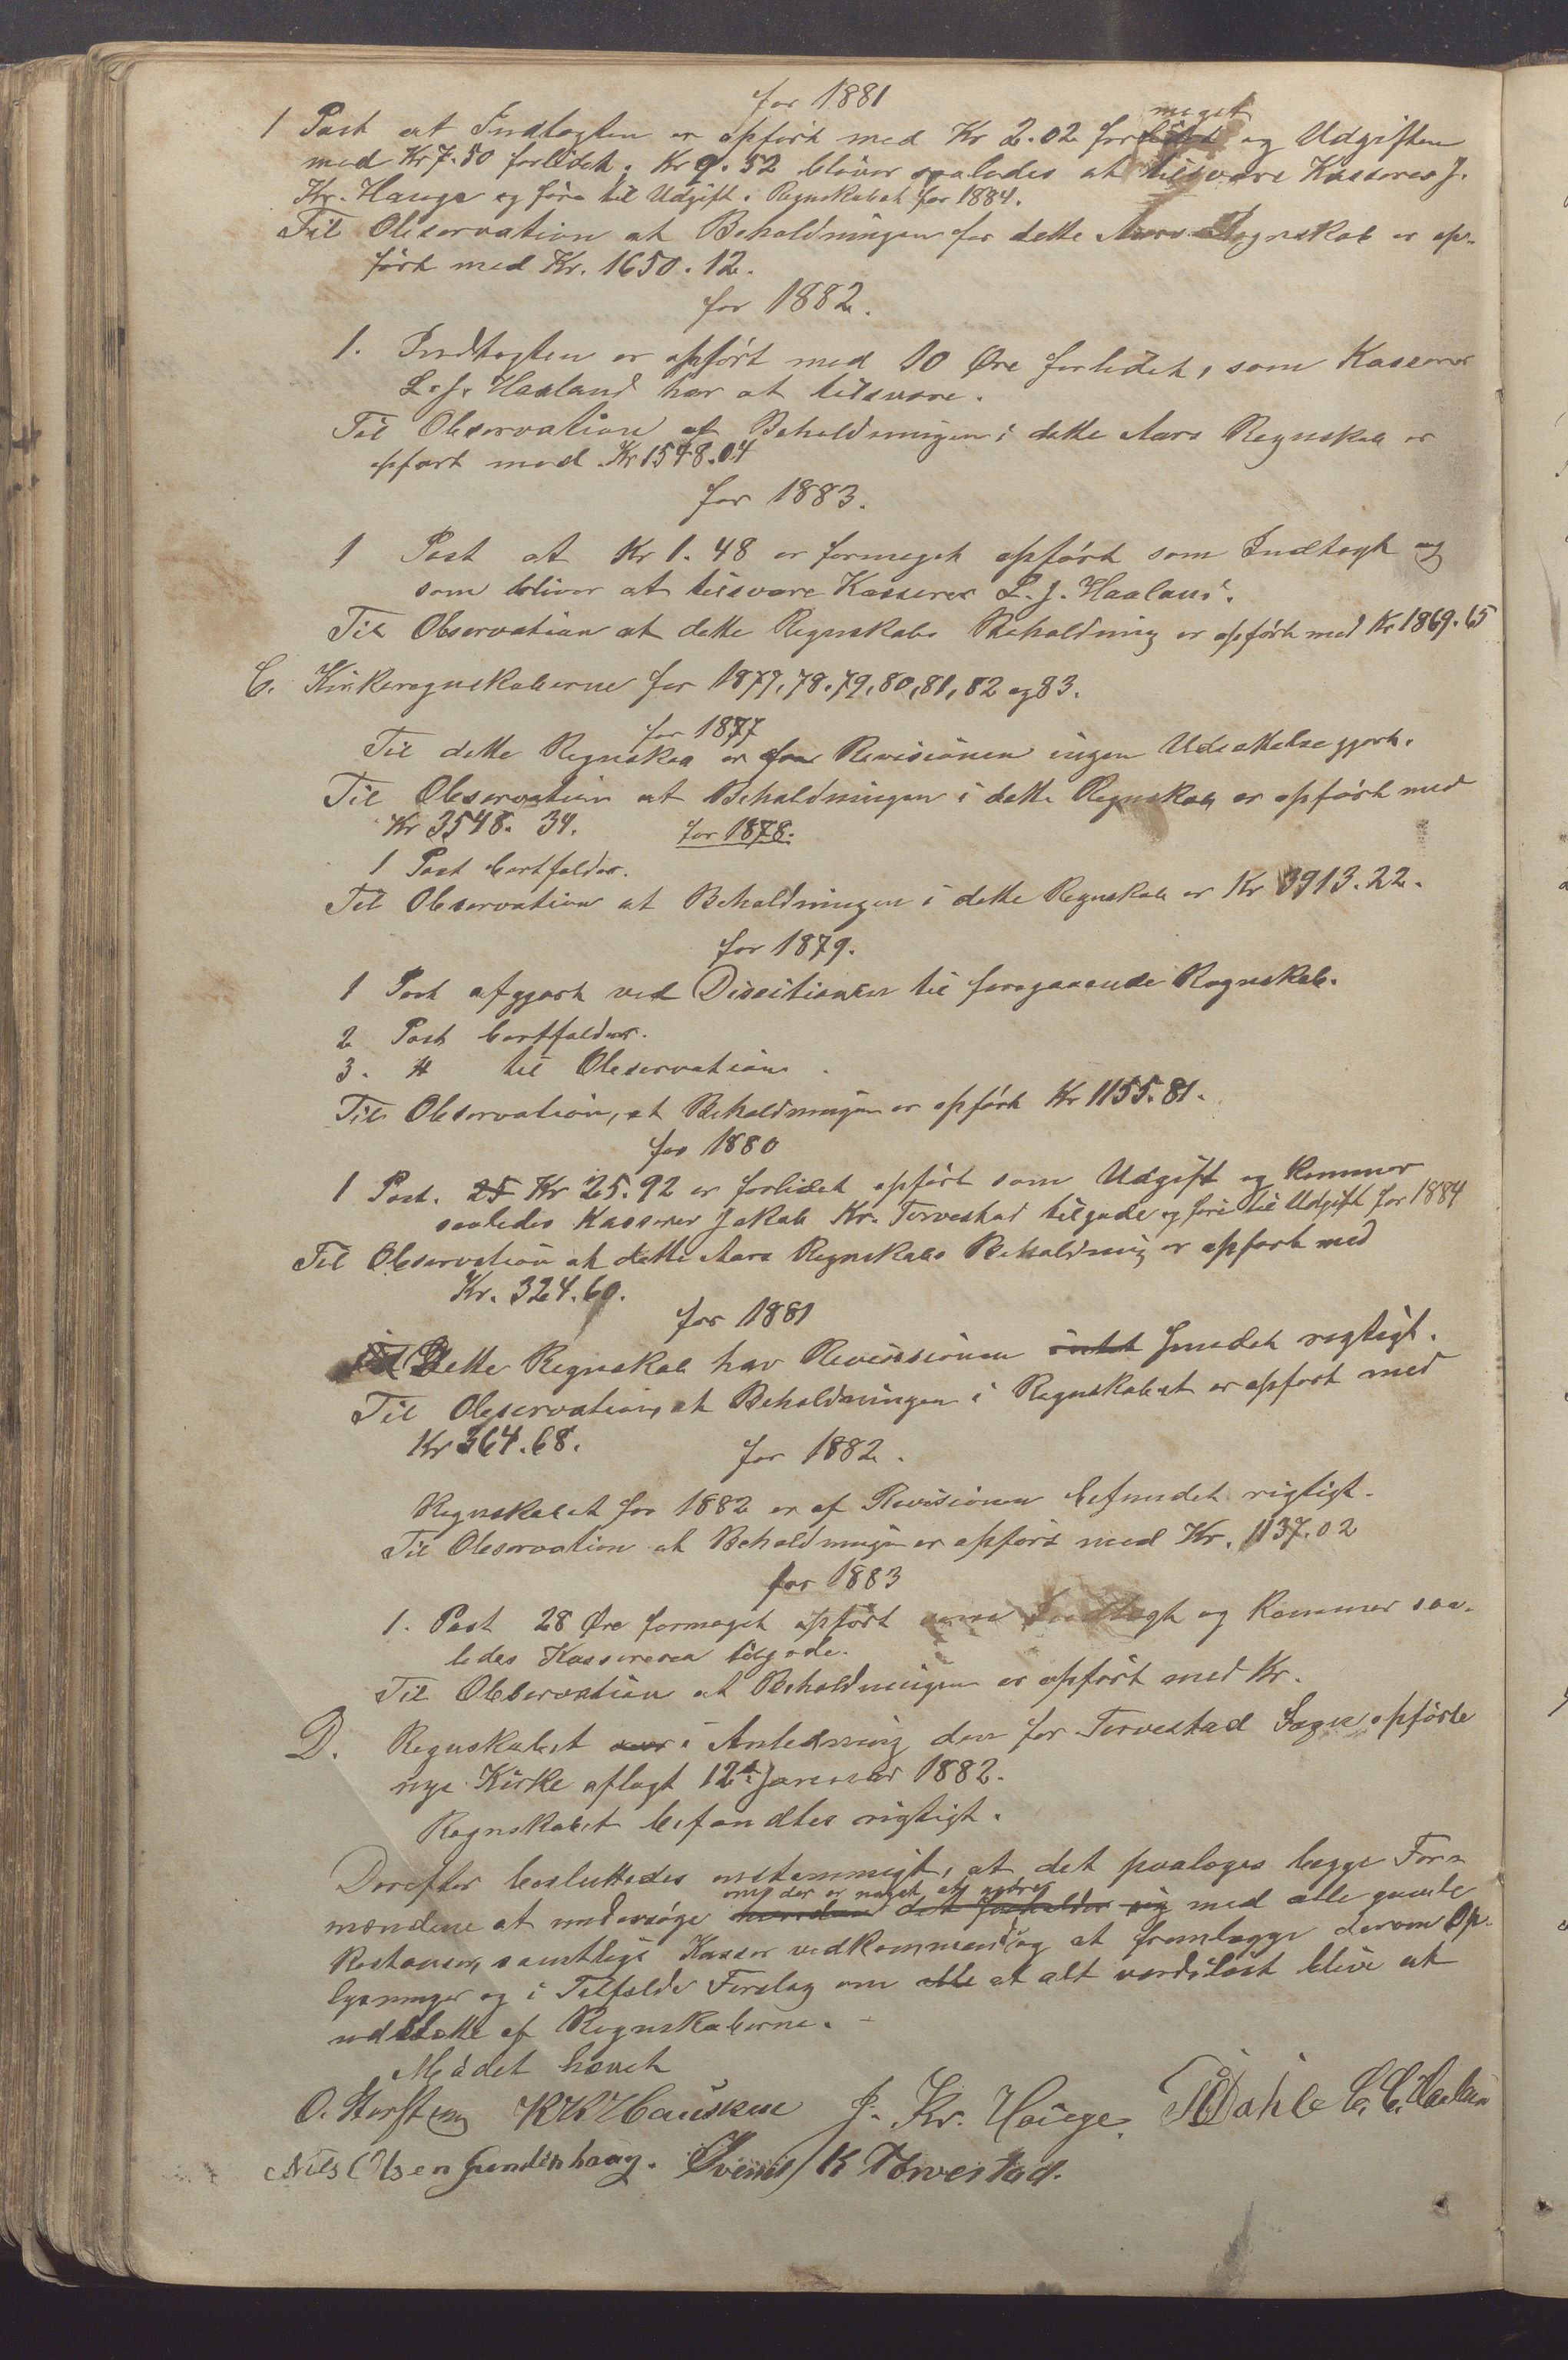 for 1881
1 Post at Indtægten er opført med Kr 2.02 formeget og Udgiften
med Kr 7.50 forlidet. Kr 9.52 bliver saaledes at tilsvare Kasserer J.
Kr. Hauge og føre til Udgift i Regnskabet for 1884.
Til Observation at Beholdningen for dette Aars Regnskab er op-
ført med Kr. 1650.12.
for 1882.
1. Indtægten er opført med 10 Øre forlidet, som Kasserer
L. J. Haaland har at tilsvare.
Til Observation at Beholdningen i dette Aars Regnskab er
opført med Kr 1548.04
for 1883.
1 Post at Kr 1.48 er formeget opført som Indtægt og
som bliver at tilsvare Kasserer L. J. Haaland.
Til Observation at dette Regnskabs Beholdning er opført med Kr 1869.65
C. Kirkeregnskaberne for 1877, 78. 79, 80, 81, 82 og 83.
for 1877
Til dette Regnskab er Revisionen ingen Udsættelse gjort.
Til Observation at Beholdningen i dette Regnskab er opført med
Kr 3548.34. for 1878.
1 Post bortfalder.
Til Observation at Beholdningen i dette Regnskab er Kr 3913.22.
for 1879.
1 Post afgjort ved Decisionen til foregaaende Regnskab.
2 Post bortfalder.
3. " til Observation.
Til Observation, at Beholdningen er opført Kr 1155.81.
for 1880
1 Post. 25 Kr 25.92 er forlidet opført som Udgift og kommer
saaledes Kasserer Jakob Kr. Torvestad tilgode og føre til Udgift for 1884
Til Observation at dette Aars Regnskabs Beholdning er opført med
Kr. 324.60.
for 1881
Dette Regnskab har Revisionen intet fundet rigtigt.
Til Observation, at Beholdningen i Regnskabet er opført med
Kr 364.68. for 1882.
Regnskabet for 1882 er af Revisionen befundet rigtigt.
Til Observation at Beholdningen er opført med Kr. 1137.02
for 1883
1. Post 28 Øre formeget opført som Indtægt og kommer saa-
ledes Kassereren tilgode.
Til Observation at Beholdningen er opført med Kr.
D. Regnskabet over i Anledning den for Torvestad Sogn opførte
nye Kirke aflagt 12te Januar 1882.
Regnskabet befandtes rigtigt.
Derefter besluttedes enstemmigt, at det paalægges begge For-
om der er noget at
mændene at undersøge hvordan det forholder sig med alle gamle
Restanser, samtlige Kasser vedkommende og at fremlægge derom Op-
lysninger og i Tilfælde Forslag om alle at alt værdiløst blive at
udslette af Regnskaberne.
Mødet hævet
O. Storsteen K K Hausken J. Kr. Hauge. Dahle C. C. Haaland
Nils Olsen Grindenhaug. Svend K Torvestad.